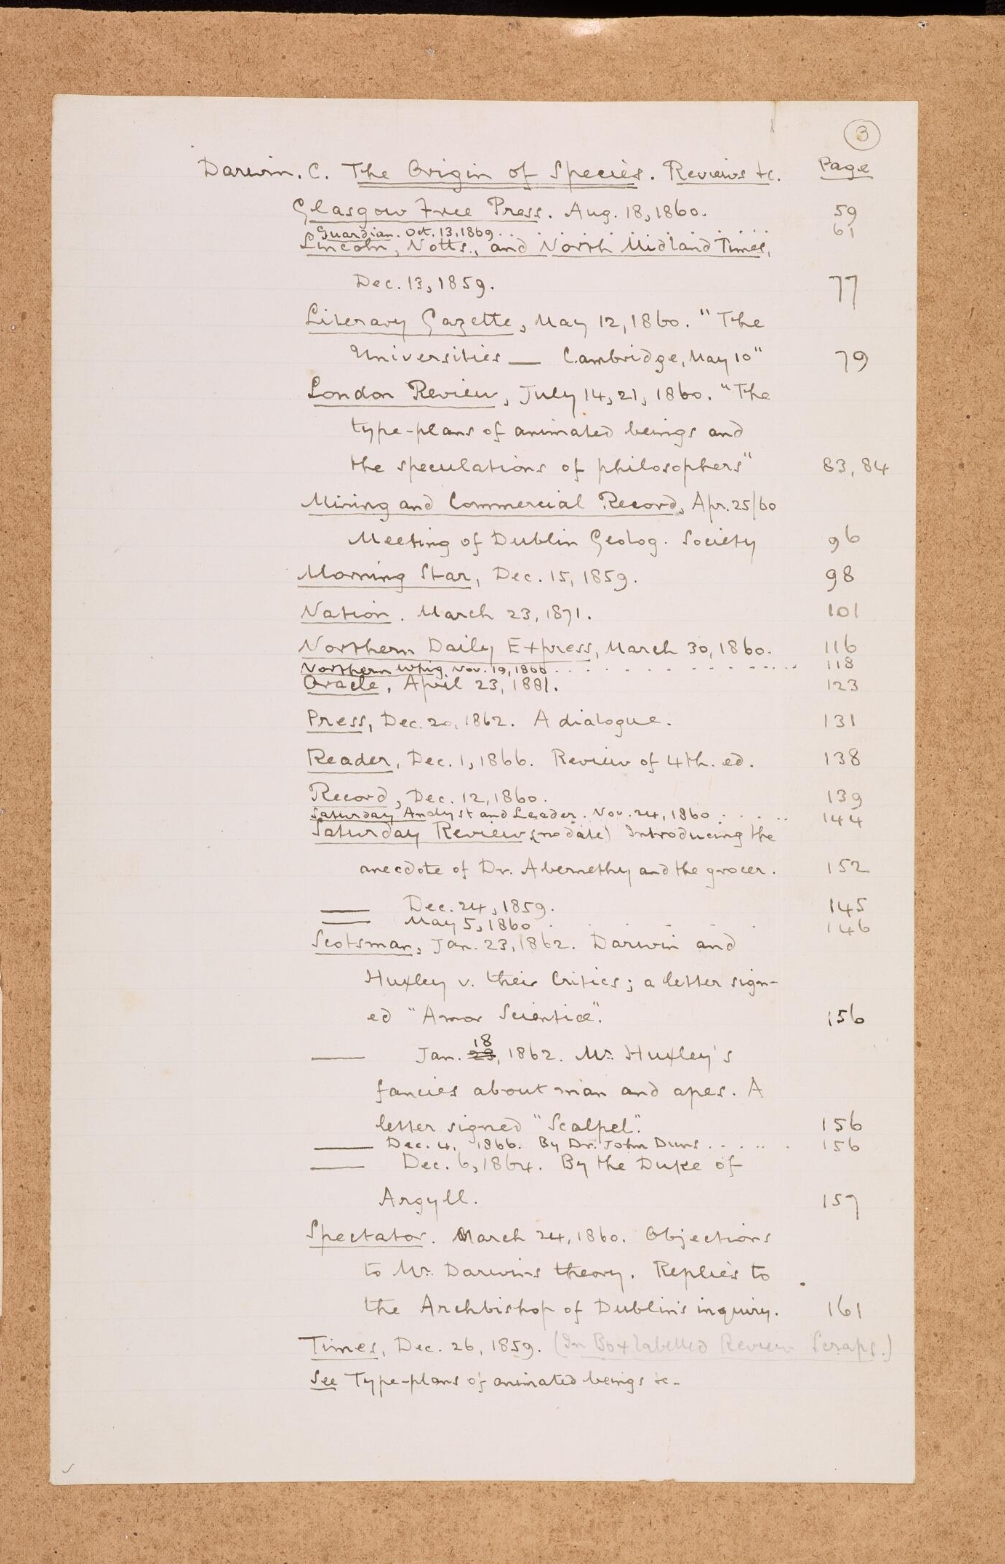 3
Darwin. C. The Origin of Species. Reviews &c. Page
Glasgow Free Press. Aug. 18, 1860. 59
Guardian. Oct. 13, 1869 . . . . . . . . 61
Lincoln, Notts., and North Midland Times,
Dec. 13, 1859. 77
Literary Gazette, May 12, 1860. "The
Universities — Cambridge, May 10" 79
London Review, July 14, 21, 1860. "The
type-plans of animated beings and
the speculations of philosophers" 83, 84
Mining and Commercial Record, Apr. 25/60
Meeting of Dublin Geolog. Society 96
Morning Star, Dec. 15, 1859. 98
Nation. March 23, 1871. 101
Northern Daily Express, March 30, 1860. 116
Northern Whig. Nov. 19, 1860 . . . . . . . . . . 118
Oracle, April 23, 1881. 123
Press, Dec. 20, 1862. A dialogue. 131
Reader, Dec. 1, 1866. Review of 4th. ed. 138
Record, Dec. 12, 1860. 139
Saturday Analyst and Leader. Nov. 24, 1860 . . . . . 144
Saturday Review (no date) Introducing the
anecdote of Dr. Abernethy and the grocer. 152
— Dec. 24, 1859. 145
— May 5, 1860 . . . . . . 146
Scotsman, Jan. 23, 1862. Darwin and
Huxley v. their Critics; a letter sign-
ed "Amor Scientiæ". 156
— Jan. 23, 18 1862. Mr. Huxley's
fancies about man and apes. A
letter signed "Scalpel". 156
— Dec. 4, 1866. By Dr. John Duns . . . . . . 156
— Dec. 6, 1864. By the Duke of
Argyll. 157
Spectator. March 24, 1860. Objections
to Mr. Darwins theory. Replies to
the Archbishop of Dublin's inquiry. 161
Times, Dec. 26, 1859. (In Box labelled Review Scraps.)
See Type-plans of animated beings &c-